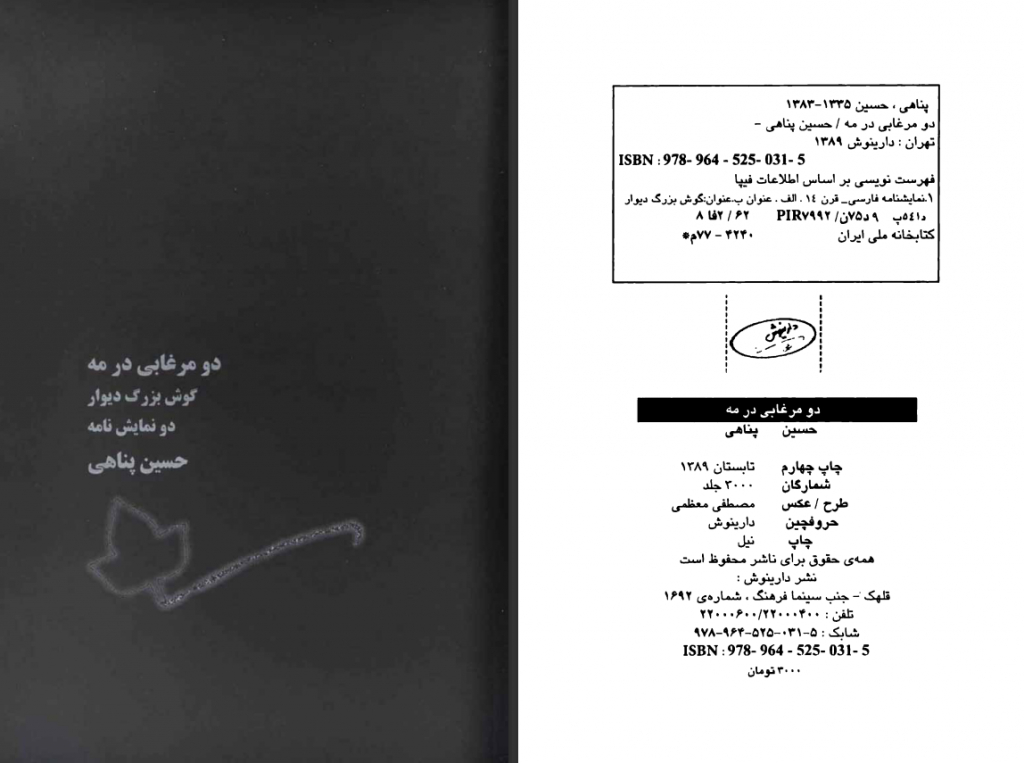 دو مرغابی در مه
گوش بزرگ دیوار
دو نمایش نامه
حسین پناهی
پناهی ، حسین ۱۳۳۵-۱۳۸۳
دو مرغابی در مه / حسین پناهی -
تهران : دارینوش ۱۳۸۹
ISBN : 978- 964 - 525- 031- 5
فهرست نویسی بر اساس اطلاعات فیپا
۱.نمایشنامه فارسی_ قرن ١٤ . الف . عنوان ب.عنوان:گوش بزرگ دیوار
۹د۷۵ن/ PIR۷۹۹۲ ۶۲ / ۲فا ۸
کتابخانه ملی ایران ۴۲۴۰ - ۷۷م*
دارینوش
دو مرغابی در مه
حسین پناهی
چاپ چهارم تابستان ۱۳۸۹
شمارگان ۳۰۰۰ جلد
طرح / عکس مصطفی معظمی
حروفچین دارینوش
چاپ نیل
همه‌ی حقوق برای ناشر محفوظ است
نشر دارینوش :
قلهک - جنب سینما فرهنگ ، شماره‌ی ۱۶۹۲
تلفن : ۲۲۰۰۰۶۰۰/۲۲۰۰۰۴۰۰
شابک : ۵-۰۳۱-۵۲۵-۹۶۴-۹۷۸
ISBN : 978- 964 - 525- 031- 5
۳۰۰۰ تومان